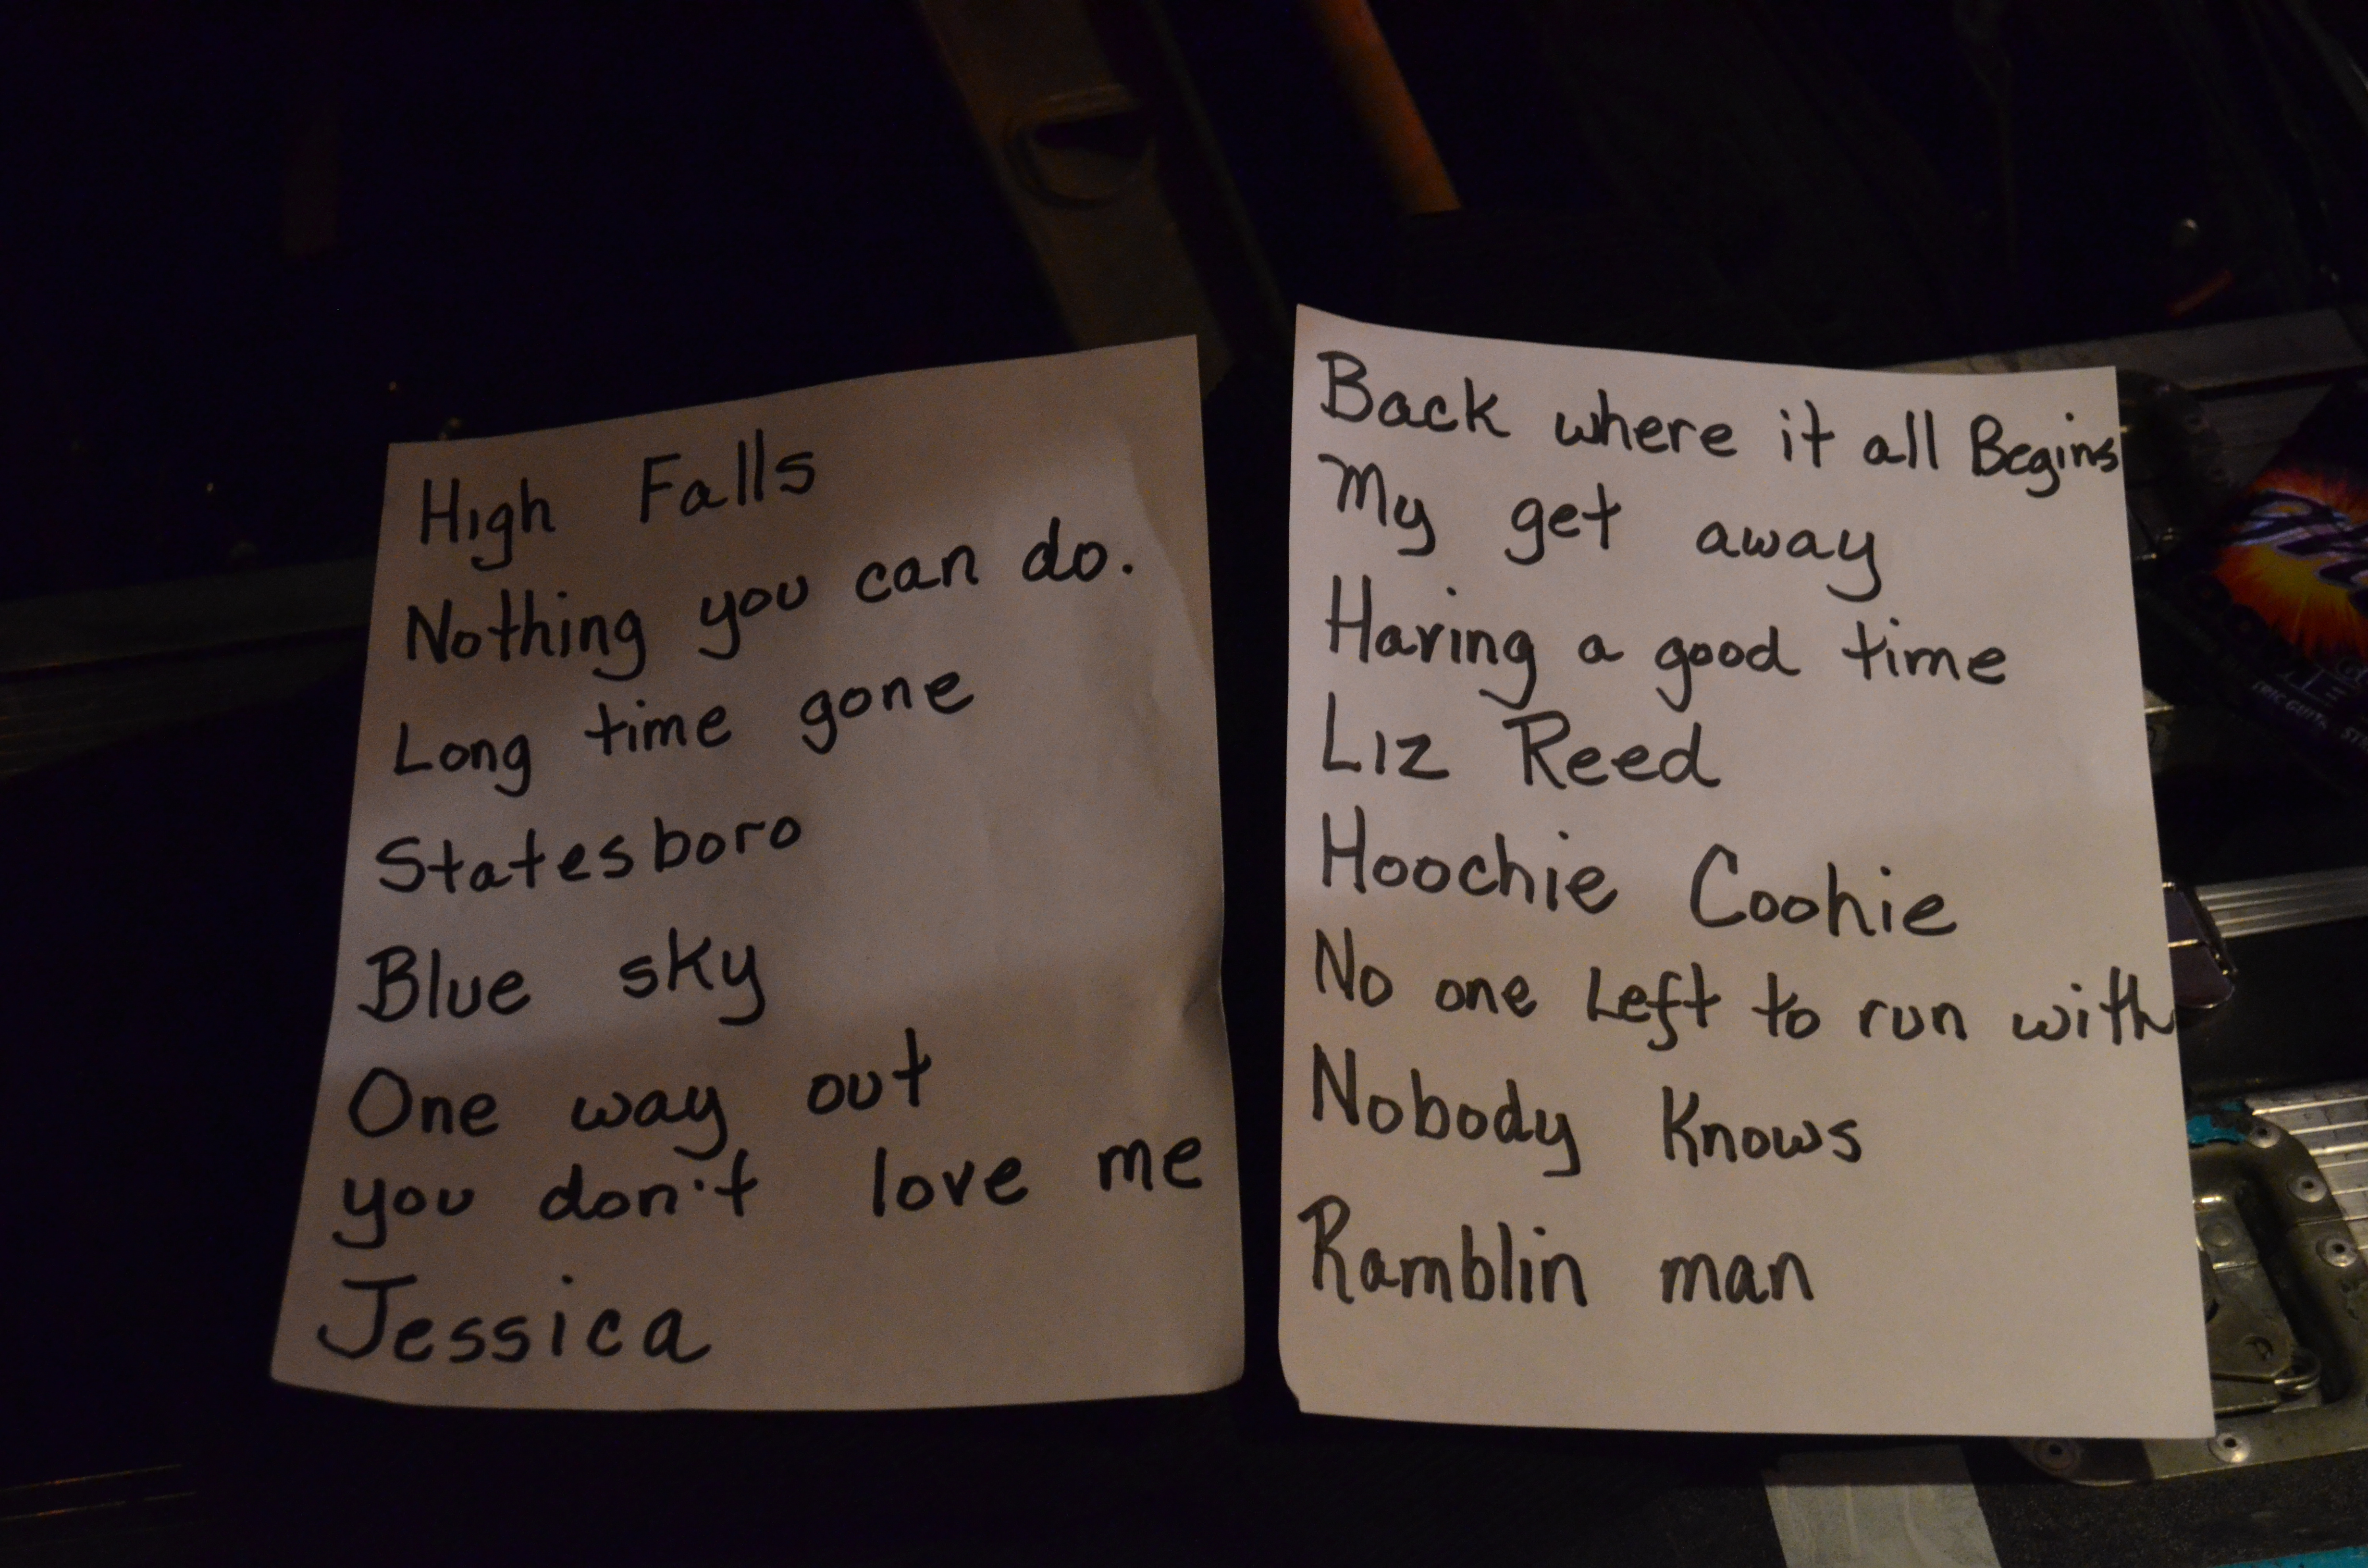 High Falls
Nothing you can do.
Long time gone
Statesboro
Blue sky
One way out
you don't love me
Jessica
Back where it all Begins
My get away
Having a good time
Liz Reed
Hoochie Coohie
No one Left to run with
Nobody Knows
Ramblin man